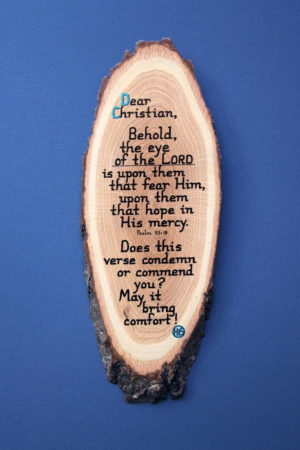 Dear
Christian,
Behold,
the eye
of the LORD
is upon them
that fear Him,
upon them
that hope in
His mercy.
Psalm 33:18
Does this
verse condemn
or commend
you?
May it
bring
comfort!